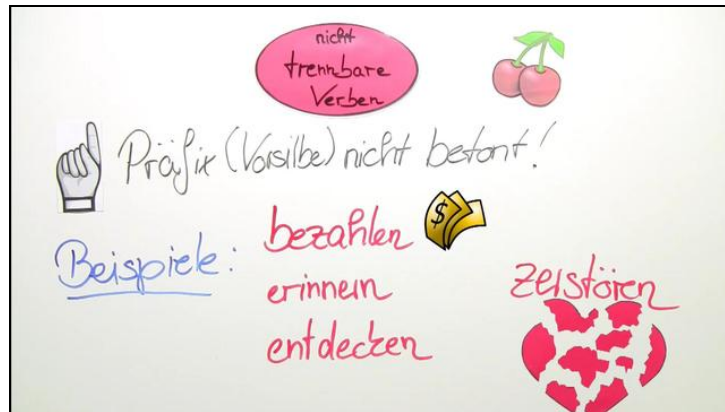 nicht
trennbare
Verben
Präfix (Vorsilbe) nicht betont!
Beispiele:
bezahlen
$
erinnern
entdecken
zerstören